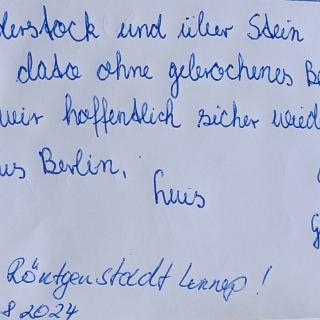 derstock und über Stein
dass ohne gebrochenes Be
wir hoffentlich sicher wied
us Berlin.
huis
G
Röntgenstadt Lennep!
8 2024